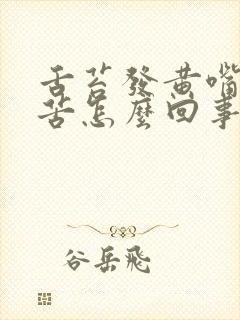 舌苔發黃嘴
苦怎麼回事
谷岳飛